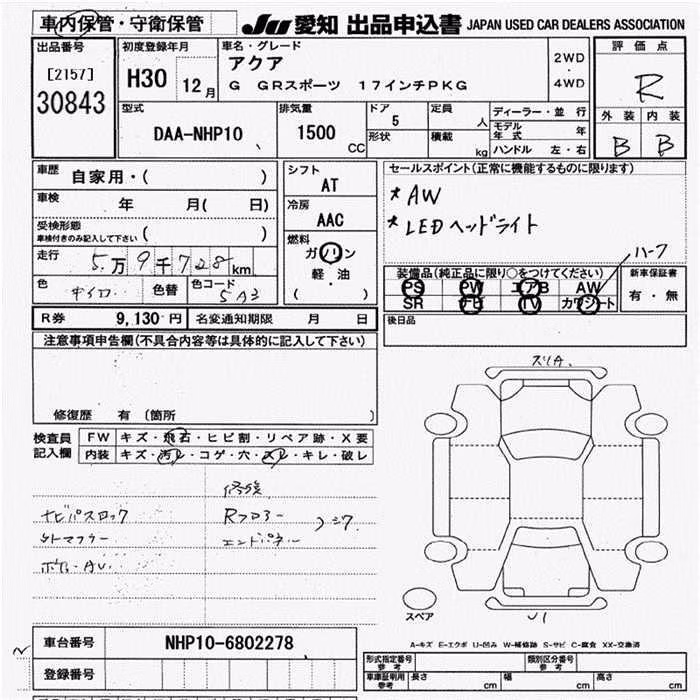 車内保管・守衛保管
JU 愛知 出品申込書 JAPAN USED CAR DEALERS ASSOCIATION
出品番号
[2157]
30843
初度登録年月
H30 12月
車名・グレード
アクア
G GRスポーツ 17インチPKG
2WD
・
4WD
評価点
R
外装 内装
B B
型式
DAA-NHP10
排気量
1500
CC
ドア
5
形状
定員
人
積載
kg
ディーラー・並行
モデル年式 年
ハンドル 左・右
車歴
自家用・( )
車検
年 月( 日)
受検形態
車検付きのみ記入して下さい ( )
走行
5万9千728km
色
色替
色コード
5A3
シフト
AT
冷房
AAC
燃料
ガソリン
軽・油
( )
セールスポイント(正常に機能するものに限ります)
* AW
* LEDヘッドライト
ハーフ
装備品(純正品に限り○をつけてください)
PS PW エアB AW
SR ナビ TV カワシート
新車保証書
有・無
後日品
R券 9,130円
名変通知期限 月 日
注意事項申告欄(不具合内容等は具体的に記入して下さい)
修復歴 有 〔箇所 〕
検査員記入欄
FW キズ・飛石・ヒビ割・リペア跡・X要
内装 キズ・汚レ・コゲ・穴・スレ・キレ・破レ
修復
ナビパスロック
Rフロアー
エンドパネル
外マフラー
スリA
U1
スペア
A-キズ E-エクボ U-凹み W-補修跡 S-サビ C-腐食 XX-交換済
車台番号
NHP10-6802278
登録番号
形式指定番号
参考
類別区分番号
参考
車庫証明用
参考
長さ cm
幅 cm
高さ cm